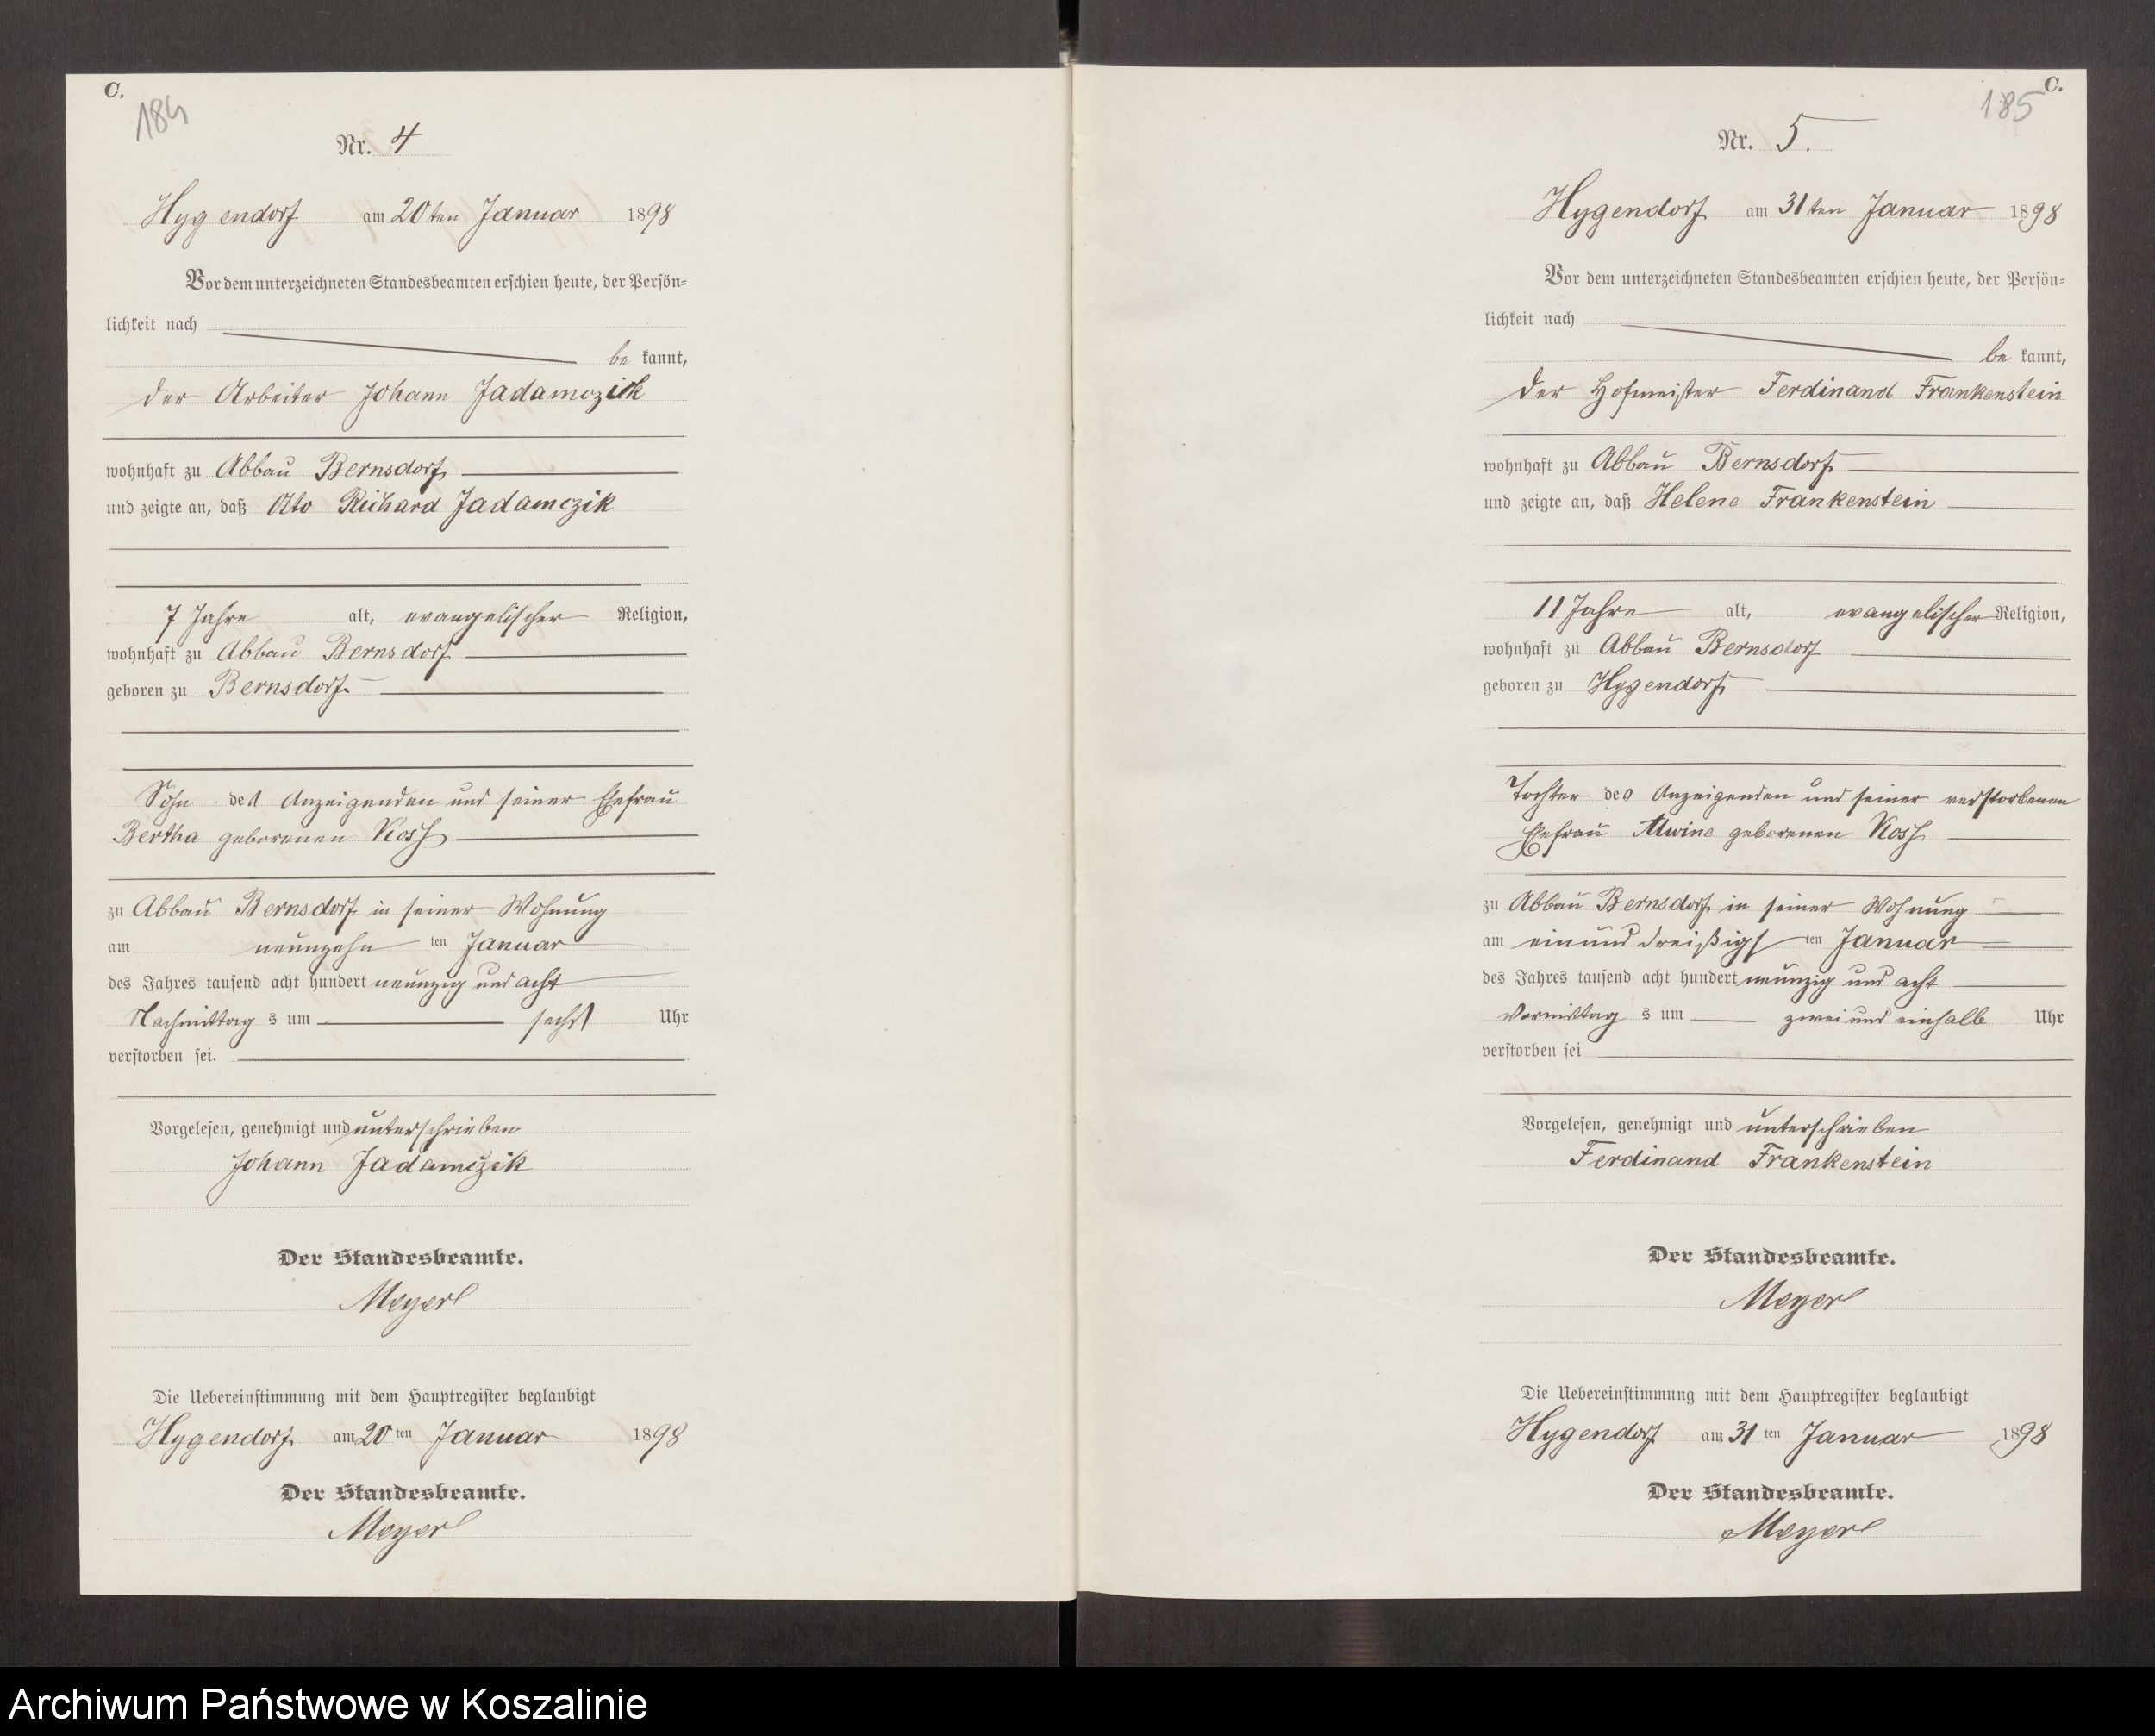 C.
184
Nr. 4
Hygendorf am 20ten Januar 1898
Vor dem unterzeichneten Standesbeamten erschien heute, der Persön=
lichkeit nach
be kannt,
der Arbeiter Johann Jadamczik
wohnhaft zu Abbau Bernsdorf
und zeigte an, daß Otto Richard Jadamczik
7 Jahre alt, evangelischer Religion,
wohnhaft zu Abbau Bernsdorf
geboren zu Bernsdorf
Sohn des Anzeigenden und seiner Ehefrau
Bertha geborenen Koss
zu Abbau Bernsdorf in seiner Wohnung
am neunzehn ten Januar
des Jahres tausend acht hundert neunzig und acht
Nachmittag s um sechs Uhr
verstorben sei.
Vorgelesen, genehmigt und unterschrieben
Johann Jadamczik
Der Standesbeamte.
Meyer
Die Uebereinstimmung mit dem Hauptregister beglaubigt
Hygendorf am 20 ten Januar 1898
Der Standesbeamte.
Meyer
C.
185
Nr. 5.
Hygendorf am 31ten Januar 1898
Vor dem unterzeichneten Standesbeamten erschien heute, der Persön=
lichkeit nach
be kannt,
der Hofmeister Ferdinand Frankenstein
wohnhaft zu Abbau Bernsdorf
und zeigte an, daß Helene Frankenstein
11 Jahre alt, evangelischer Religion,
wohnhaft zu Abbau Bernsdorf
geboren zu Hygendorf
Tochter des Anzeigenden und seiner verstorbenen
Ehefrau Alwine geborenen Koss
zu Abbau Bernsdorf in seiner Wohnung
am einunddreißigs ten Januar
des Jahres tausend acht hundert neunzig und acht
Vormittag s um zwei und einhalb Uhr
verstorben sei
Vorgelesen, genehmigt und unterschrieben
Ferdinand Frankenstein
Der Standesbeamte.
Meyer
Die Uebereinstimmung mit dem Hauptregister beglaubigt
Hygendorf am 31 ten Januar 1898
Der Standesbeamte.
Meyer
Archiwum Państwowe w Koszalinie